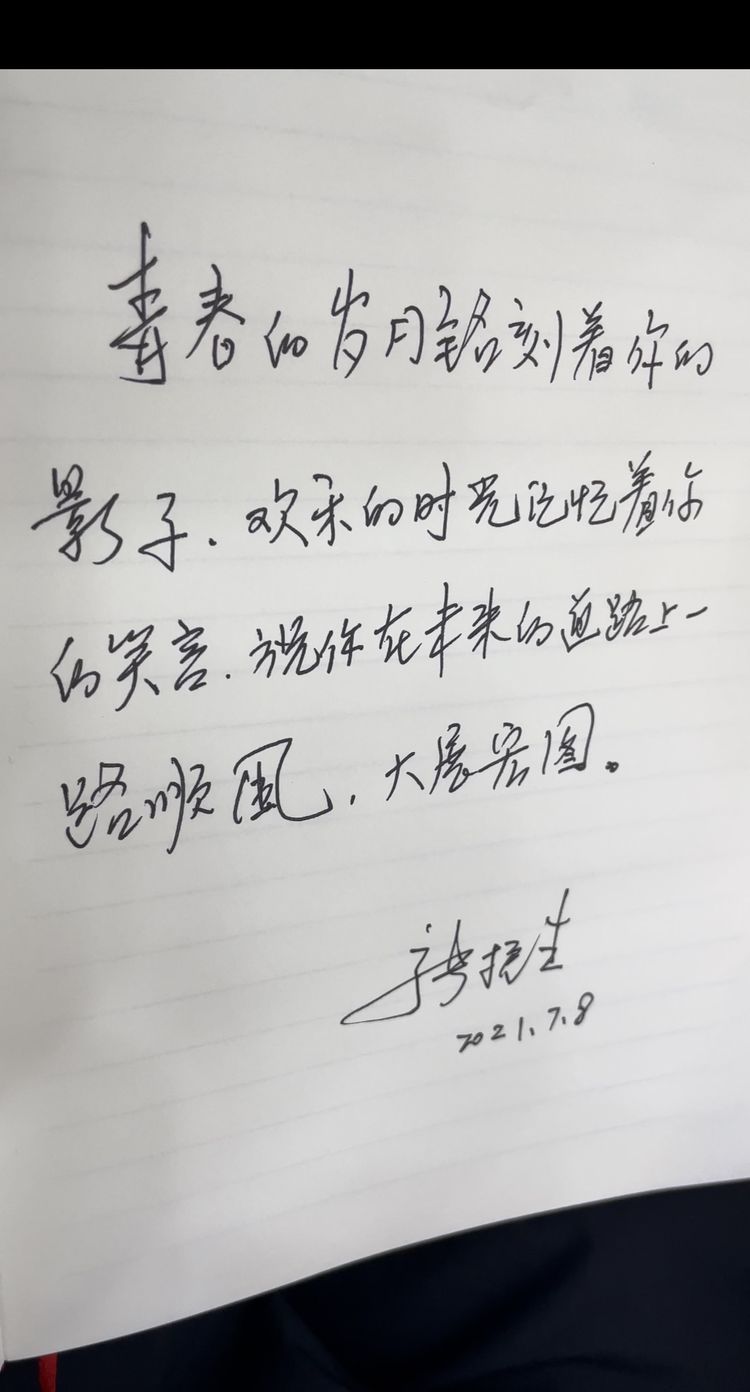 青春的岁月铭刻着你的
影子.欢乐的时光记忆着你
的笑容.祝你在未来的道路上一
路顺风,大展宏图。
2021.7.8